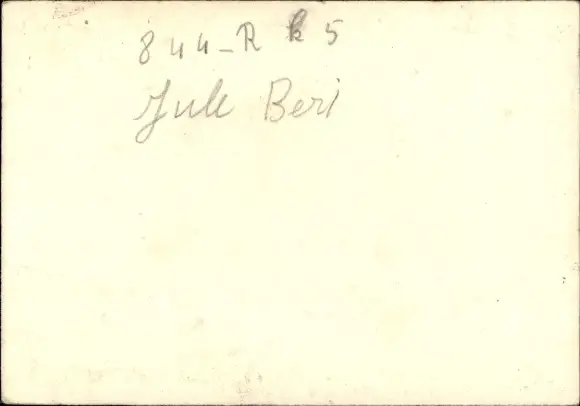 844-R k 5
Jule Beri